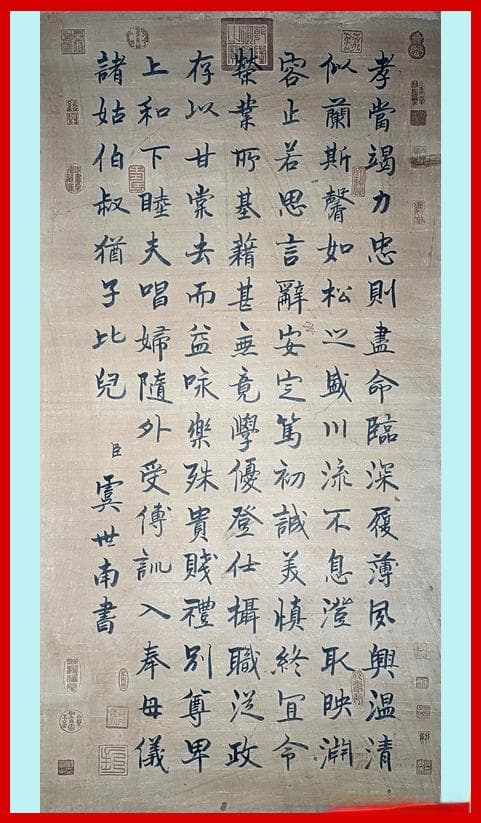 孝當竭力忠則盡命臨深履薄夙興温清
似蘭斯馨如松之盛川流不息澄取映淵
容止若思言辭安定篤初誠美慎終宜令
榮業所基藉甚無竟學優登仕攝職從政
存以甘棠去而益咏樂殊貴賤禮別尊卑
上和下睦夫唱婦隨外受傅訓入奉母儀
諸姑伯叔猶子比兒
臣虞世南書